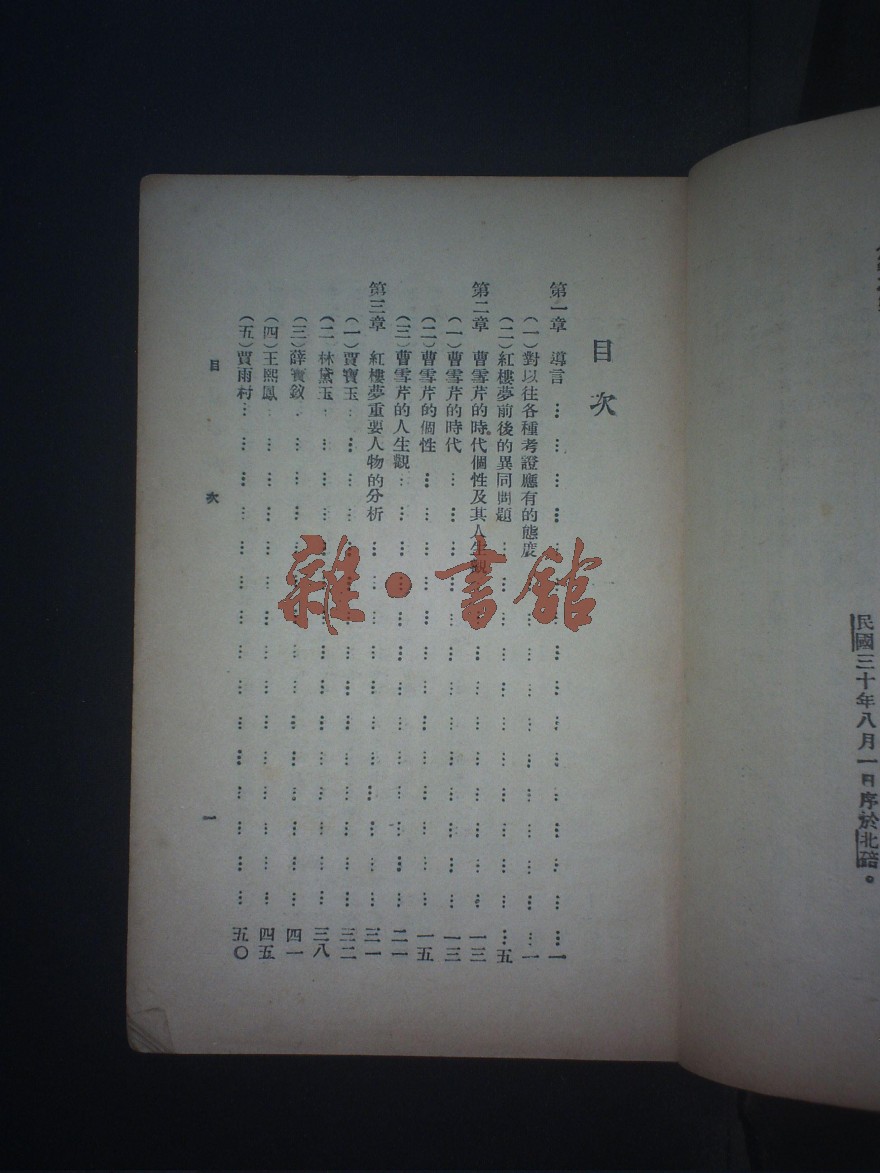 民國三十年八月一日序於北碚。
目次
第一章 導言 一
（一）對以往各種考證應有的態度 一
（二）紅樓夢前後的異同問題 五
第二章 曹雪芹的時代個性及其人生觀 一三
（一）曹雪芹的時代 一三
（二）曹雪芹的個性 一五
（三）曹雪芹的人生觀 二一
第三章 紅樓夢重要人物的分析 三一
（一）賈寶玉 三二
（二）林黛玉 三八
（三）薛寶釵 四一
（四）王熙鳳 四五
（五）賈雨村 五〇
目次 一
雜·書館